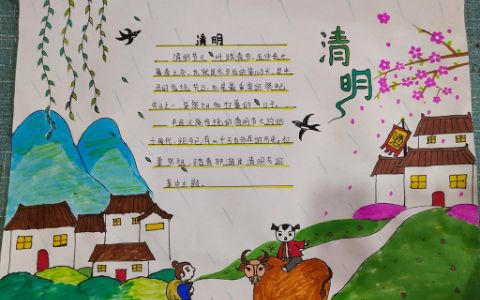 清明
清明
清明节又叫踏青节,在仲春与
暮春之交,也就是冬至后的第108天,是中
国的传统节日,也是最重要的祭祀
节日之一,是祭祖和扫墓的日子。
中华汉族传统的清明节大约始
于周代,距今已有二千五百多年的历史。扫
墓祭祖、踏青郊游是清明节的
基本主题。
酒